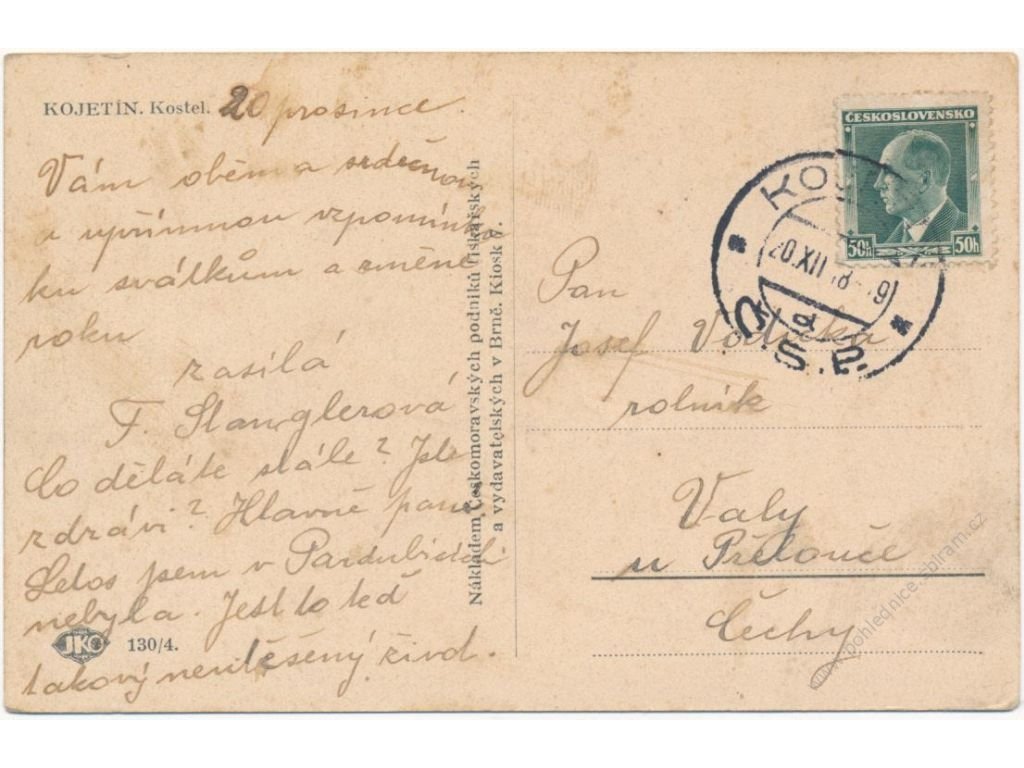 KOJETÍN. Kostel. 20 prosince.
Vám oběma srdečnou
a upřímnou vzpomínku
ku svátkům a změně
roku
zasílá
F. Stanglerová
Co děláte stále? Jste
zdrávi? Hlavně paní
Letos jsem v Pardubicích
nebyla. Jest to teď
takový neutěšený život.
JKO 130/4.
Nákladem Českomoravských podniků tiskařských
a vydavatelských v Brně. Kiosk 7.
ČESKOSLOVENSKO
50h 50h
20.XII 38
Pan
Josef Vodička
rolník
Valy
u Přelouče
Čechy
www.pohlednice.sbiram.cz